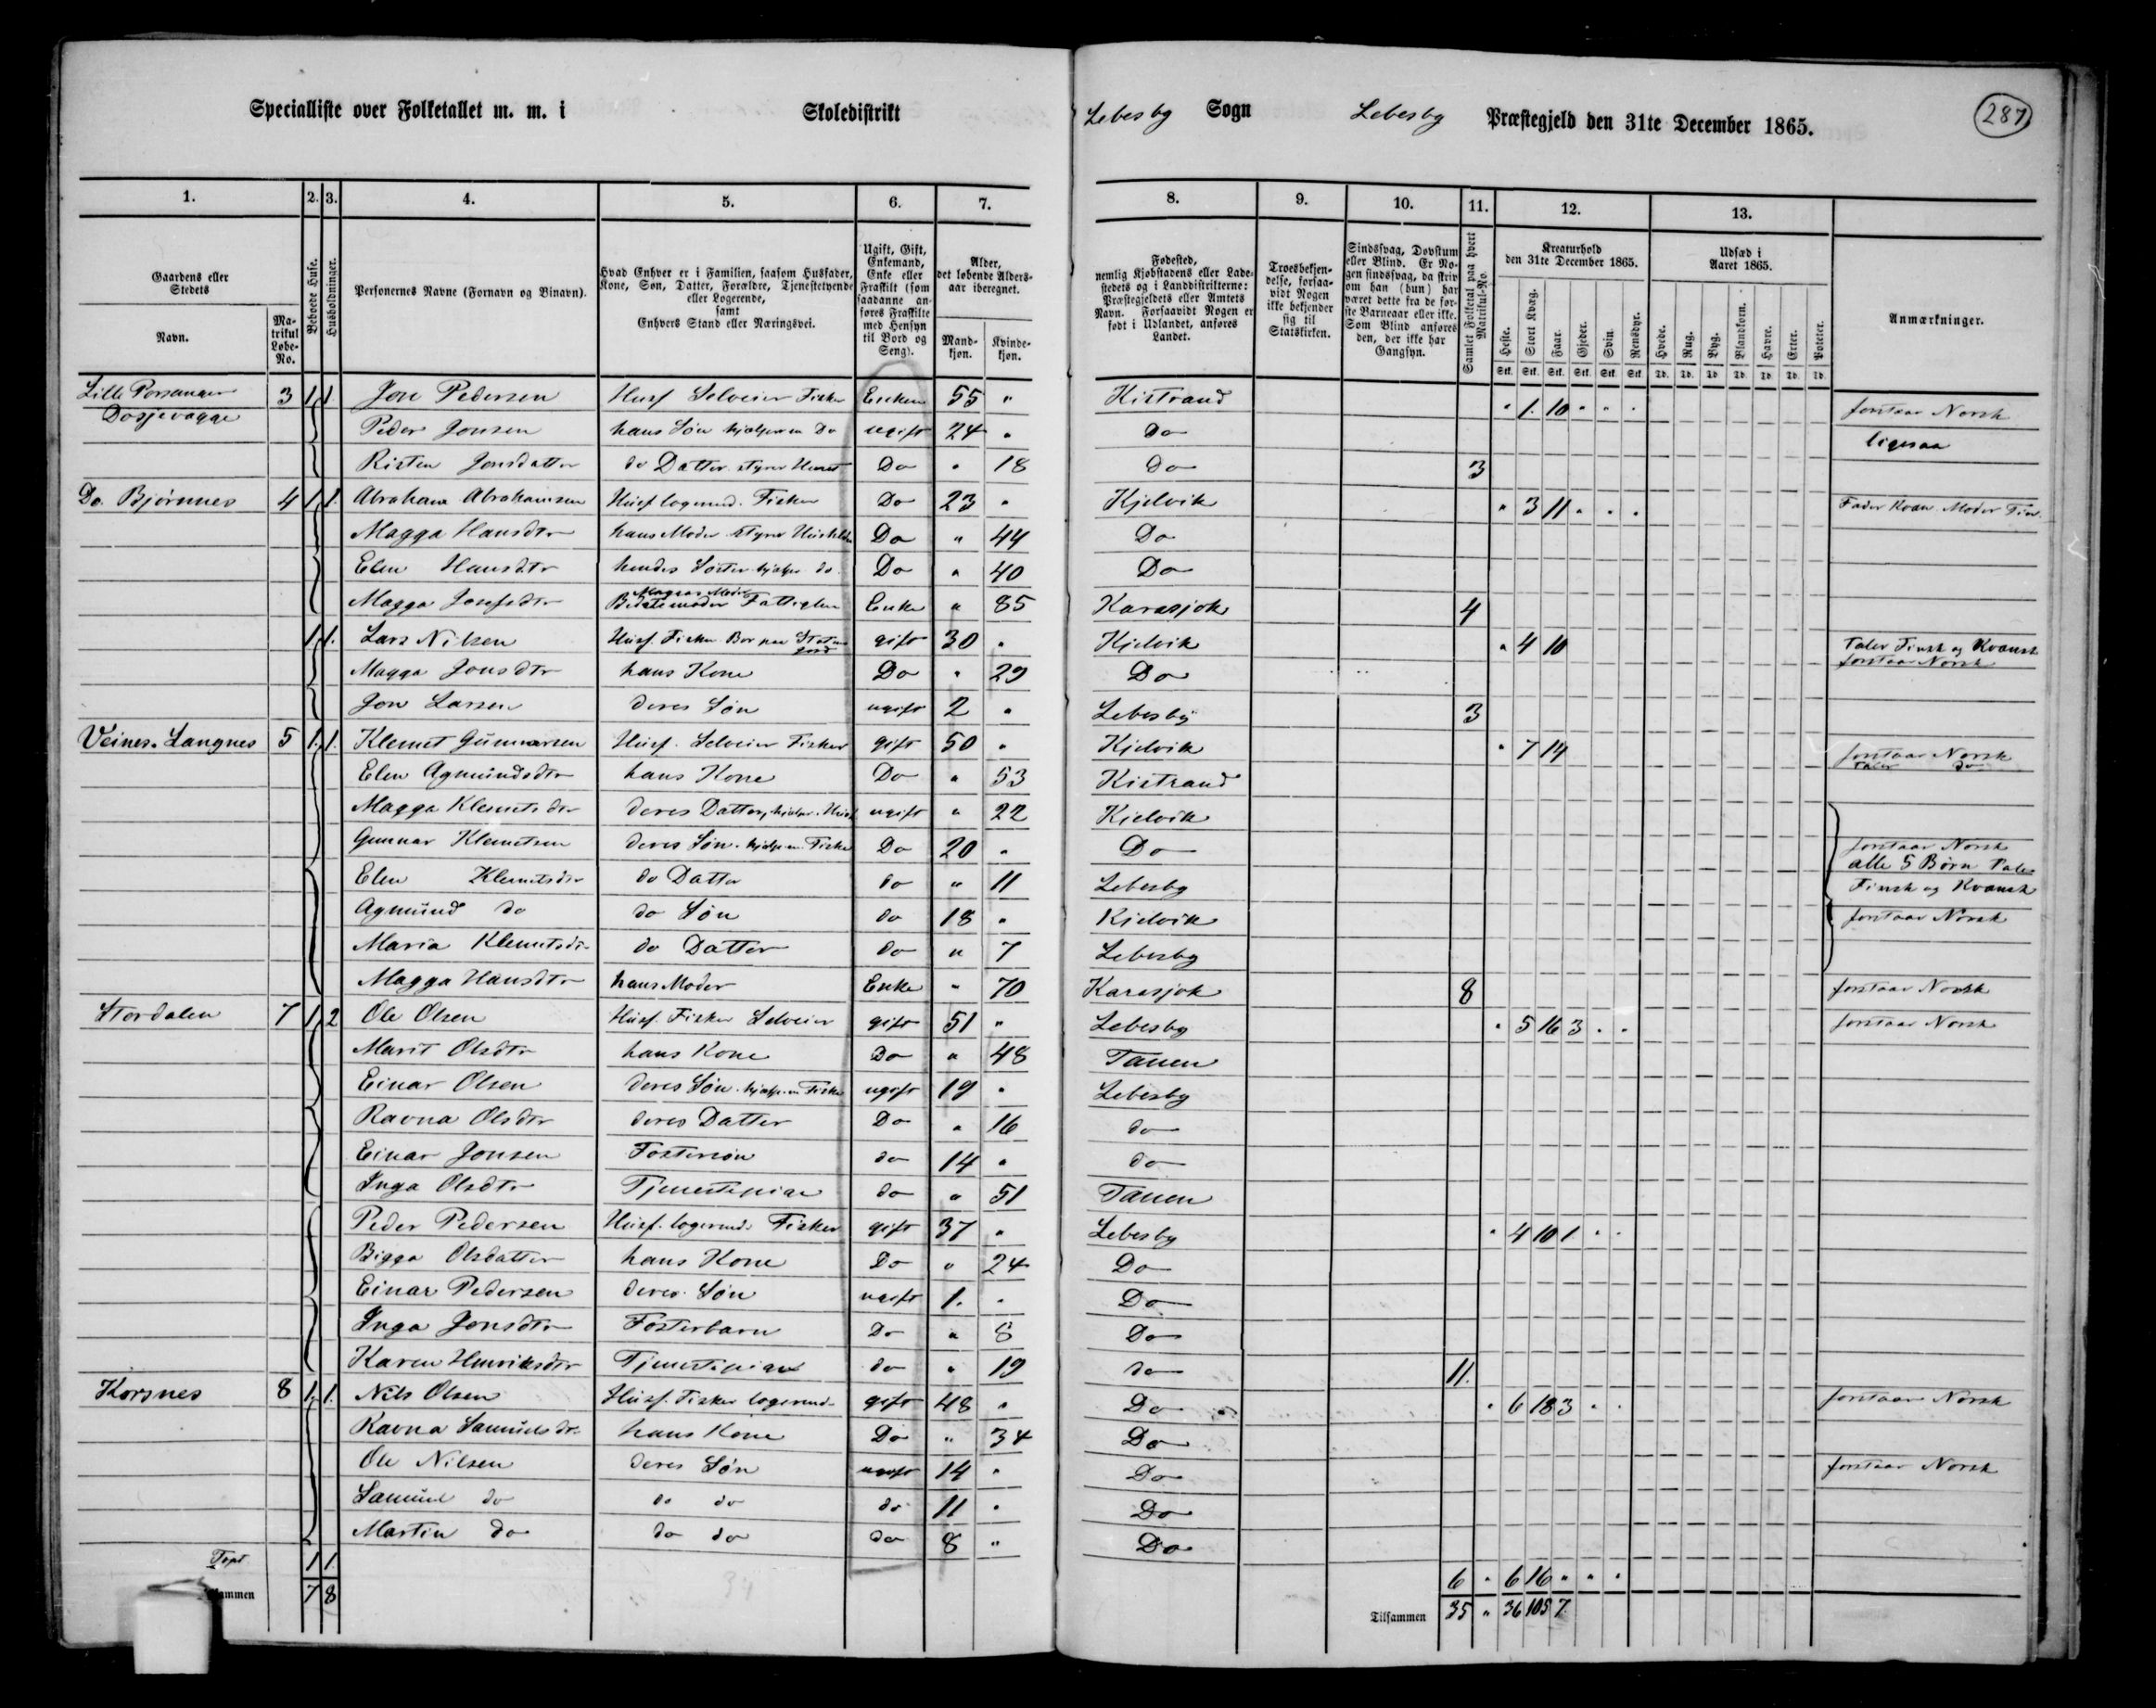 Specialliste over Folketallet m. m. i Skoledistrikt Lebesby Sogn Lebesby Præstegjeld den 31te December 1865. 287
1. 2. 3. 4. 5. 6. 7. 8. 9. 10. 11. 12. 13.
Gaardens eller Stedets
Navn. Matrikul Løbe-No.
Beboede Huse.
Husholdninger.
Personernes Navne (Fornavn og Binavn).
Hvad Enhver er i Familien, saasom Husfader, Kone, Søn, Datter, Forældre, Tjenestetyende eller Logerende, samt Enhvers Stand eller Næringsvei.
Ugift, Gift, Enkemand, Enke eller Fraskilt (som saadanne anføres Fraskilte med Hensyn til Bord og Seng).
Alder, det løbende Aldersaar iberegnet.
Mandkjøn. Kvindekjøn.
Fødested, nemlig Kjøbstadens eller Ladestedets og i Landdistrikterne: Præstegjeldets eller Amtets Navn. Forsaavidt Nogen er født i Udlandet, anføres Landet.
Troesbekjendelse, forsaavidt Nogen ikke bekjender sig til Statskirken.
Sindssvag, Døvstum eller Blind. Er Nogen sindssvag, da skriv om han (hun) har været dette fra de første Barneaar eller ikke. Som Blind anføres den, der ikke har Gangsyn.
Samlet Folketal paa hvert Matrikul-No.
Kreaturhold den 31te December 1865.
Heste. Stort Kvæg. Faar. Gjeder. Svin. Rensdyr.
Stk. Stk. Stk. Stk. Stk. Stk.
Udsæd i Aaret 1865.
Hvede. Rug. Byg. Blandkorn. Havre. Erter. Poteter.
Td. Td. Td. Td. Td. Td. Td.
Anmærkninger.
Lille Porsanger 3 1 1 Jon Pedersen Husf Selveier Fisker Enkem 55 " Kistrand " 1. 10 " " " forstaar Norsk
Dosjevagge Peder Jonsen hans Søn hjælper m Do ugift 24 " Do ligesaa
Risten Jonsdatter do Datter styrer Huset Do " 18 Do 3
Do. Bjørnnes 4 1 1 Abraham Abrahamsen Husf logerend. Fisker Do 23 " Kjelvik " 3 11 " " " Fader Kvæn Moder Fin
Magga Hansdtr hans Moder styrer Do " 44 Do
Elen Hansdtr hendes Søster hjelper do Do " 40 Do
Magga Josefsdtr Maggas Moder Fattiglem Enke " 85 Karasjok 4
1 1. Lars Nilsen Husf. Fisker Bor paa Statens Jord gift 30 " Kjelvik " 4 10 taler Finsk og Kvænsk
forstaar Norsk
Magga Jonsdtr hans Kone Do " 29 Do
Jon Larsen deres Søn ugift 2 " Lebesby 3
Veines. Langnes 5 1. 1. Klemet Gunnarsen Husf. Selveier Fisker gift 50 " Kjelvik " 7 14 forstaar Norsk
taler do
Elen Agmundsdtr hans Kone Do " 53 Kistrand
Magga Klemetsdtr deres Datter, hjelper i Huset ugift " 22 Kjelvik
Gunnar Klemetsen deres Søn hjelp m Fisker Do 20 " Do forstaar Norsk
Elen Klemetsdtr do Datter do " 11 Lebesby alle 5 Børn tale
Finsk og Kvænsk
Agmund do do Søn do 18 " Kjelvik forstaar Norsk
Maria Klemetsdtr do Datter do " 7 Lebesby
Magga Hansdtr hans Moder Enke " 70 Karasjok 8 forstaar Norsk
Stordalen 7 1 2 Ole Olsen Husf. Fisker Selveier gift 51 " Lebesby " 5 16 3 " " forstaar Norsk
Marit Olsdtr hans Kone Do " 48 Tanen
Einar Olsen deres Søn hjelp m Fisker ugift 19 " Lebesby
Ravna Olsdtr deres Datter Do " 16 do
Einar Jonsen Fostersøn do 14 " do
Inga Olsdtr Tjenestepige do " 51 Tanen
Peder Pedersen Husf. logerende Fisker gift 37 " Lebesby " 4 10 1 " "
Bigga Olsdatter hans Kone Do " 24 Do
Einar Pedersen deres Søn ugift 1. " Do
Inga Jonsdtr Fosterbarn Do " 8 Do
Karen Henriksdtr Tjenestepige do " 19 do 11.
Korsnes 8 1. 1. Nils Olsen Husf. Fisker logerend. gift 48 " Do " 6 18 3 " " forstaar Norsk
Ravna Samuelsdtr. hans Kone Do " 34 Do
Ole Nilsen deres Søn ugift 14 " Do forstaar Norsk
Samuel do do do do 11 " Do
Martin do do do do 8 " Do
1 1. 6 " 6 16 " " "
Tilsammen 7 8 34 Tilsammen 35 " 36 105 7.